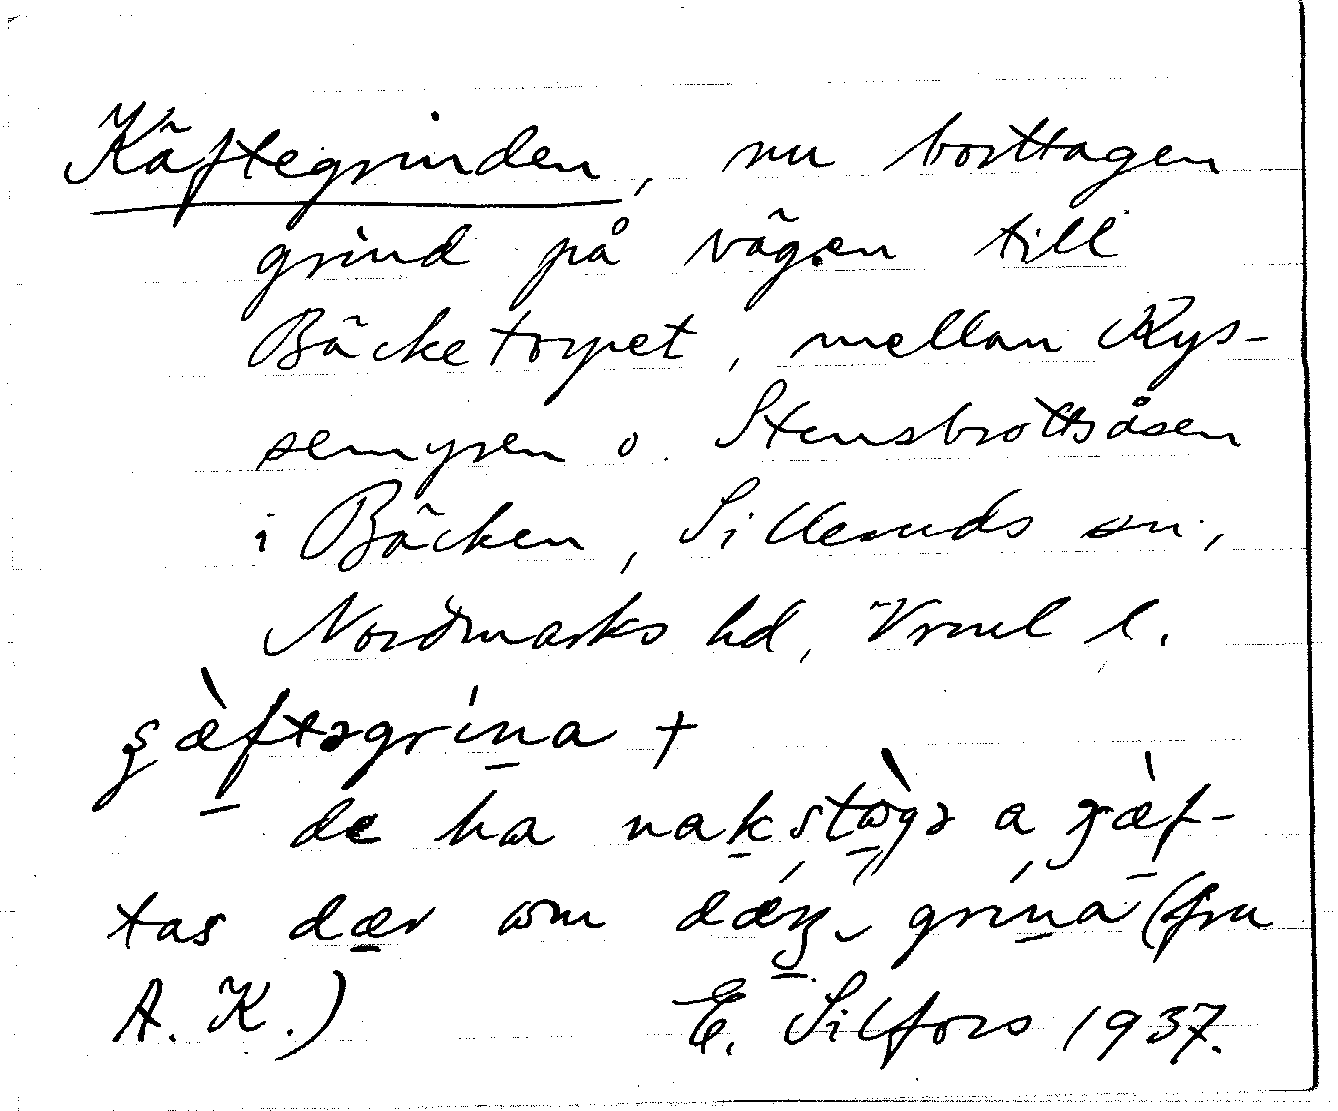 Käftegrinden, nu borttagen
grind på vägen till
Bäcketorpet, mellan Rys-
semyren o. Stensbrottsåsen
i Bäcken, Silleruds sn,
Nordmarks hd, Vrml l.
ʂæ̀ftəgrína +
de ha nakstɷ̀gə a ʂæ̀f-
tas dær ɷm grína (fru
A. K.) E. Silfors 1937.